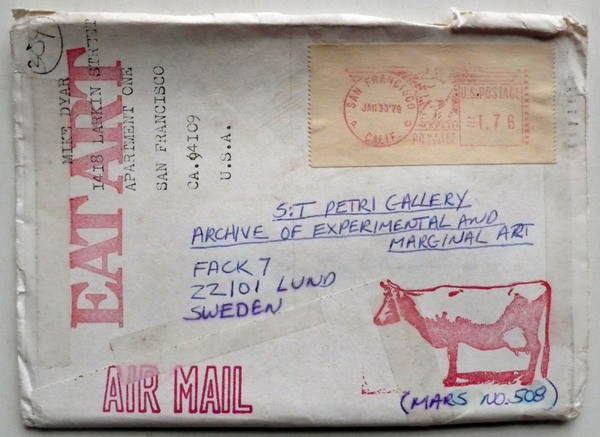 MIKE DYAR
1418 LARKIN STREET
APARTMENT ONE
SAN FRANCISCO
CA.94109
U.S.A.
EAT ART
SAN FRANCISCO
JAN 30'79
CALIF.
U.S. POSTAGE
1.76
S:T PETRI GALLERY
ARCHIVE OF EXPERIMENTAL AND
MARGINAL ART
FACK 7
22101 LUND
SWEDEN
AIR MAIL
(MARS NO. 508)